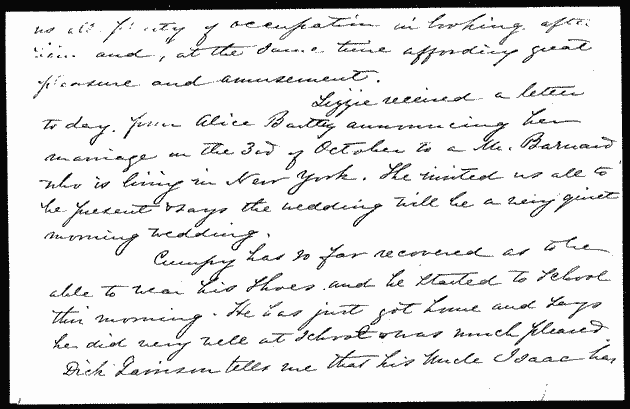 us all plenty of occupation in looking after
him and, at the same time affording great
pleasure and amusement.
Lizzie received a letter
to day. from Alice announcing her
marriage on the 3rd of October to a Mr. Barnard
who is living in New York. She invited us all to
be present & says the wedding will be a very quiet
morning wedding.
Cumpy has so far recovered as to be
able to wear his shoes and he started to School
this morning. He has just got home and says
he did very well at School & was much pleased
Dick tells me that his Uncle Isaac has